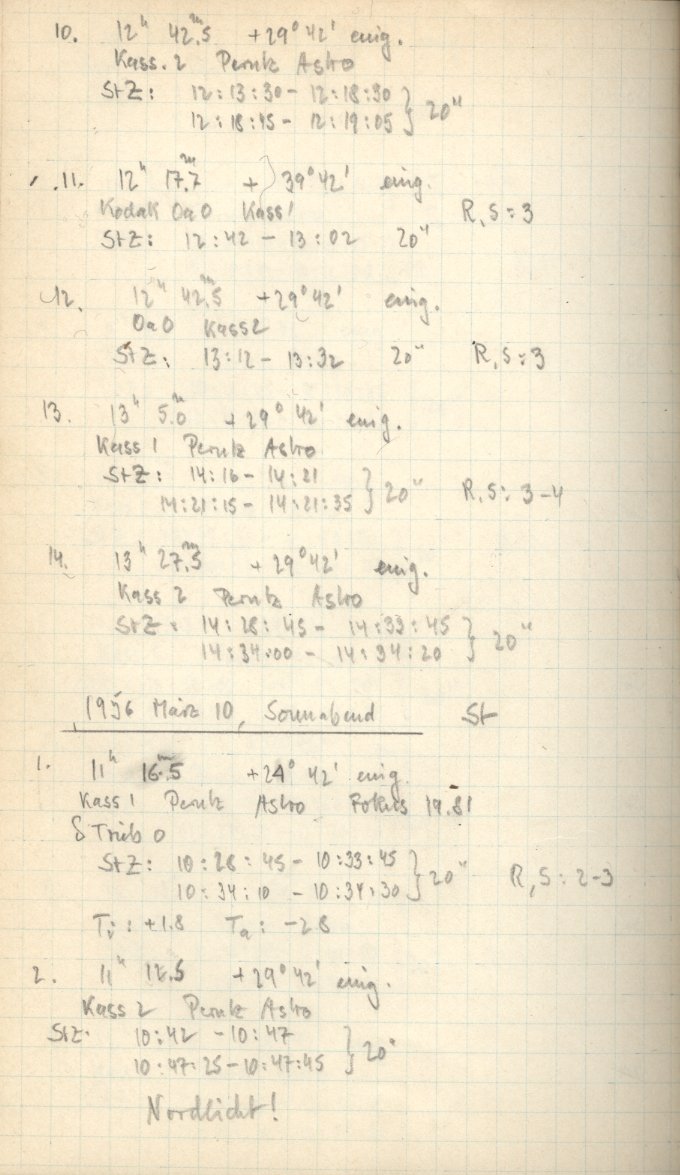 10. 12h 42m.5 +29° 42' einig.
Kass. 2 Perutz Astro
StZ: 12:13:30 - 12:18:30
12:18:45 - 12:19:05 } 20"
11. 12h 17m.7 + 39° 42' einig.
Kodak OaO Kass 1 R,S: 3
StZ: 12:42 - 13:02 20"
12. 12h 42m.5 +29° 42' einig.
OaO Kass 2
StZ: 13:12 - 13:32 20" R,S: 3
13. 13h 5m.0 +29° 42' einig.
Kass 1 Perutz Astro
StZ: 14:16 - 14:21
14:21:15 - 14:21:35 } 20" R,S: 3-4
14. 13h 27m.5 +29° 42' einig.
Kass 2 Perutz Astro
StZ: 14:28:45 - 14:33:45
14:34:00 - 14:34:20 } 20"
1956 März 10, Sonnabend St
1. 11h 16m.5 +24° 42' einig.
Kass 1 Perutz Astro Fokus 19.81
δ Trieb 0
StZ: 10:28:45 - 10:33:45
10:34:10 - 10:34:30 } 20" R,S: 2-3
Ti: +1.8 Ta: -2.8
2. 11h 12.5 +29° 42' einig.
Kass 2 Perutz Astro
StZ. 10:42 - 10:47
10:47:25 - 10:47:45 } 20"
Nordlicht!